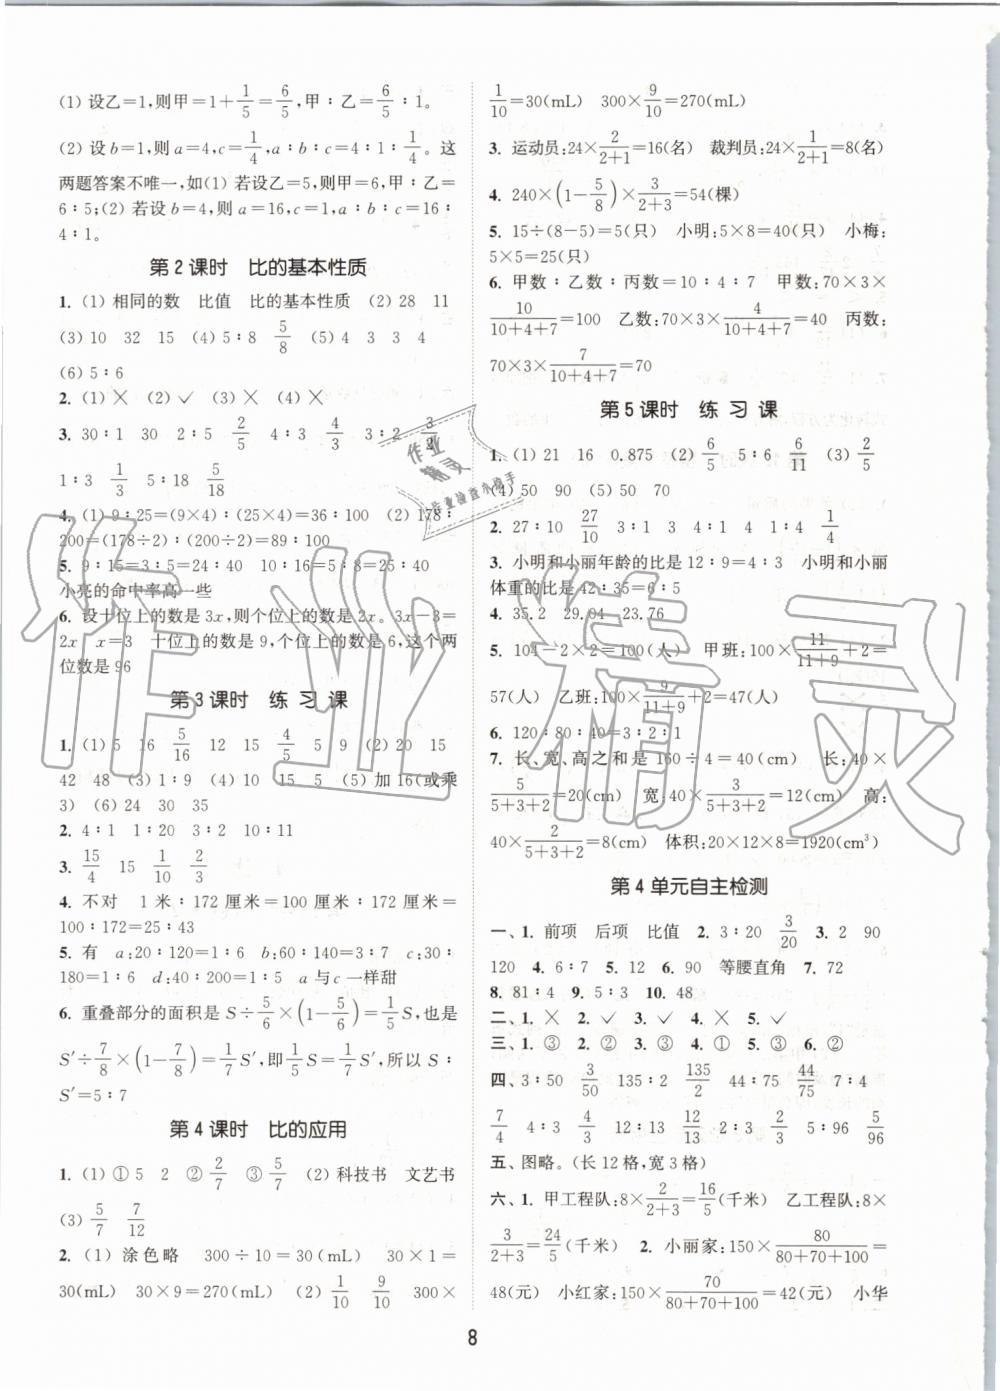 (1) 设乙=1,则甲=1+1/5=6/5,甲∶乙=6/5∶1。
(2) 设b=1,则a=4,c=1/4,a∶b∶c=4∶1∶1/4。这
两题答案不唯一,如(1) 若设乙=5,则甲=6,甲∶乙=
6∶5;(2) 若设b=4,则a=16,c=1,a∶b∶c=16∶
4∶1。
第2课时 比的基本性质
1. (1) 相同的数 比值 比的基本性质 (2) 28 11
(3) 10 32 15 (4) 5∶8 5/8 (5) 4 3 3 4
(6) 5∶6
2. (1) × (2) ✓ (3) × (4) ×
3. 30∶1 30 2∶5 2/5 4∶3 4/3 3∶2 3/2
1∶3 1/3 5∶18 5/18
4. (1) 9∶25=(9×4)∶(25×4)=36∶100 (2) 178∶
200=(178÷2)∶(200÷2)=89∶100
5. 9∶15=3∶5=24∶40 10∶16=5∶8=25∶40
小亮的命中率高一些
6. 设十位上的数是3x,则个位上的数是2x。3x-3=
2x x=3 十位上的数是9,个位上的数是6,这个两
位数是96
第3课时 练习课
1. (1) 5 16 5/16 12 15 4/5 5 9 (2) 20 15
42 48 (3) 1∶9 (4) 10 15 5 (5) 加16(或乘
3) (6) 24 30 35
2. 4∶1 1∶20 3∶2 10∶11
3. 15/4 15 1/10 2/3
4. 不对 1米∶172厘米=100厘米∶172厘米=
100∶172=25∶43
5. 有 a:20∶120=1∶6 b:60∶140=3∶7 c:30∶
180=1∶6 d:40∶200=1∶5 a与c一样甜
6. 重叠部分的面积是S÷5/6×(1-5/6)=1/5S,也是
S′÷7/8×(1-7/8)=1/7S′,即1/5S=1/7S′,所以S∶
S′=5∶7
第4课时 比的应用
1. (1) ①5 2 ②2/7 ③5/7 (2) 科技书 文艺书
(3) 5/7 7/12
2. (1) 涂色略 300÷10=30(mL) 30×1=
30(mL) 30×9=270(mL) (2) 1/10 9/10 300×
1/10=30(mL) 300×9/10=270(mL)
3. 运动员:24×2/(2+1)=16(名) 裁判员:24×1/(2+1)=8(名)
4. 240×(1-5/8)×3/(2+3)=54(棵)
5. 15÷(8-5)=5(只) 小明:5×8=40(只) 小梅:
5×5=25(只)
6. 甲数∶乙数∶丙数=10∶4∶7 甲数:70×3×
10/(10+4+7)=100 乙数:70×3×4/(10+4+7)=40 丙数:
70×3×7/(10+4+7)=70
第5课时 练习课
1. (1) 21 16 0.875 (2) 6/5 5∶6 6/11 (3) 2/5
(4) 50 90 (5) 50 70
2. 27∶10 27/10 3∶1 3 4∶1 4 1∶4 1/4
3. 小明和小丽年龄的比是12∶9=4∶3 小明和小丽
体重的比是42∶35=6∶5
4. 35.2 29.04 23.76
5. 104-2×2=100(人) 甲班:100×11/(11+9)+2=
57(人) 乙班:100×9/(11+9)+2=47(人)
6. 120∶80∶40=3∶2∶1
7. 长、宽、高之和是160÷4=40(cm) 长:40×
5/(5+3+2)=20(cm) 宽:40×3/(5+3+2)=12(cm) 高:
40×2/(5+3+2)=8(cm) 体积:20×12×8=1920(cm³)
第4单元自主检测
一、1. 前项 后项 比值 2. 3∶20 3/20 3. 2 90
120 4. 6∶7 5. 12 6. 90 等腰直角 7. 72
8. 81∶4 9. 5∶3 10. 48
二、1. × 2. ✓ 3. ✓ 4. × 5. ✓
三、1. ③ 2. ② 3. ③ 4. ① 5. ③ 6. ②
四、3∶50 3/50 135∶2 135/2 44∶75 44/75 7∶4
7/4 4∶3 4/3 12∶13 12/13 2∶3 2/3 5∶96 5/96
五、图略。(长12格,宽3格)
六、1. 甲工程队:8×2/(2+3)=16/5(千米) 乙工程队:8×
3/(2+3)=24/5(千米) 2. 小丽家:150×80/(80+70+100)=
48(元) 小红家:150×70/(80+70+100)=42(元) 小华
8
作业精灵
作业
精灵
作业检查小帮手